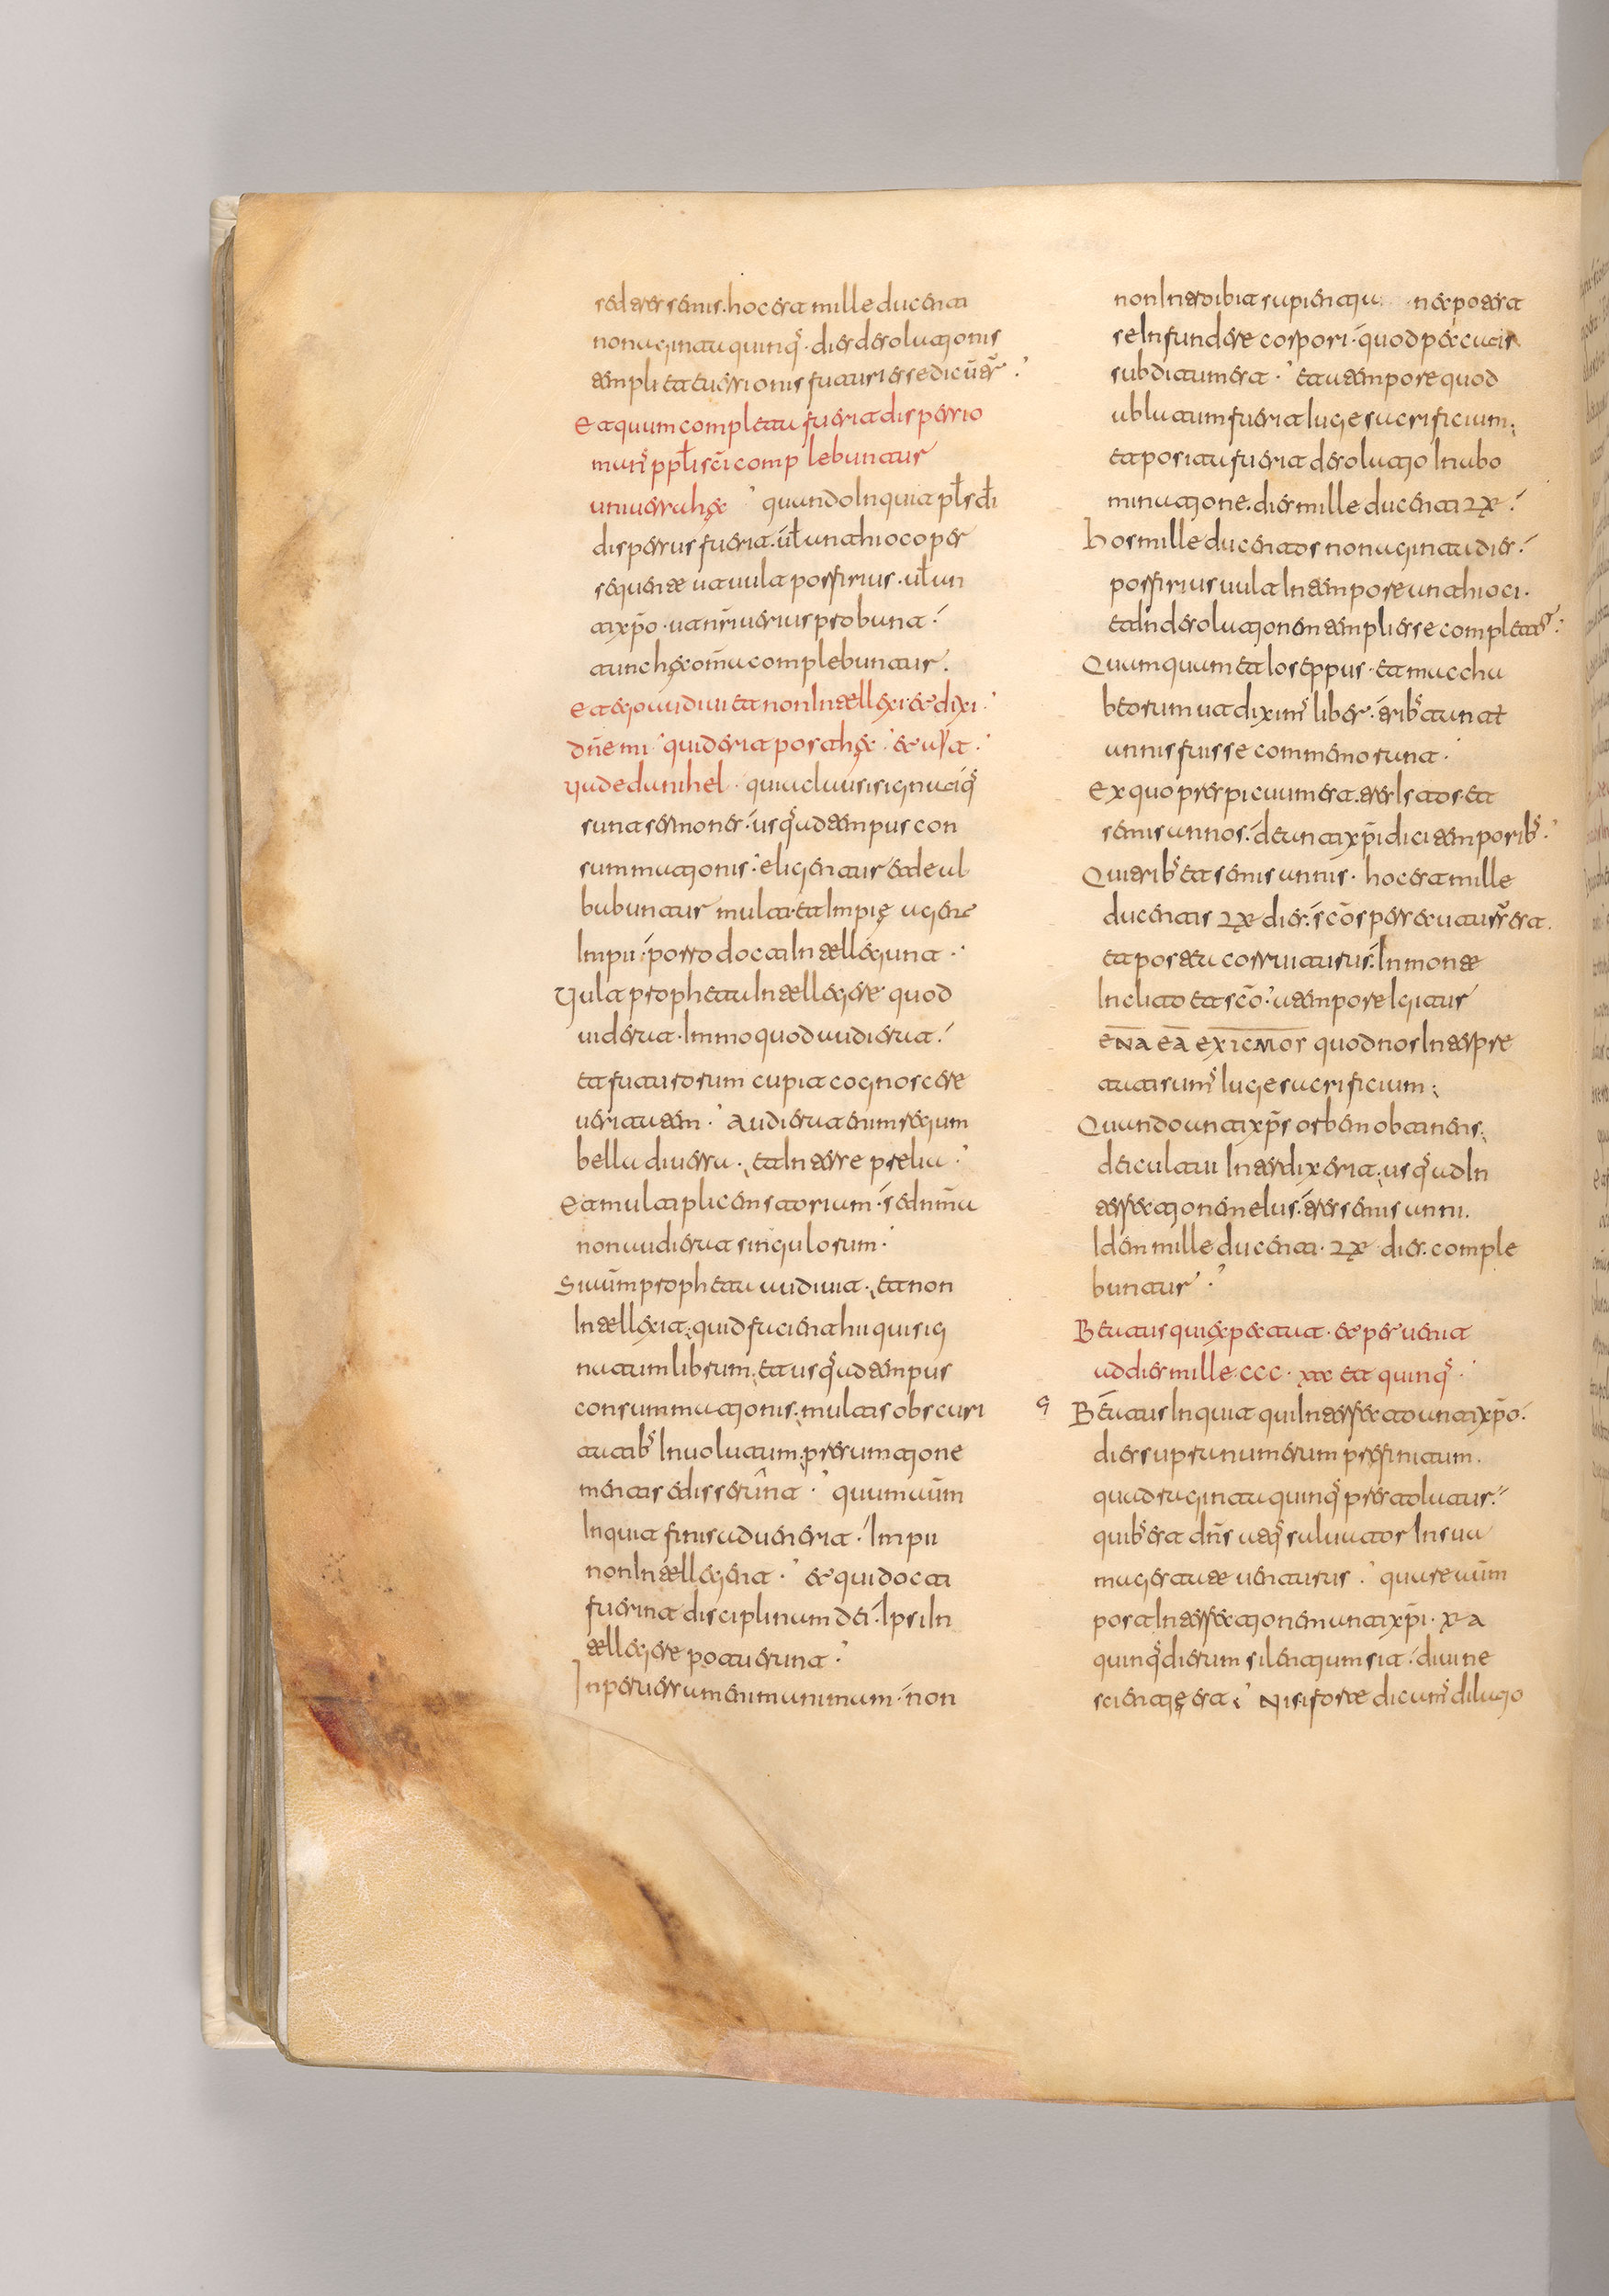 sed tres semis. hoc est mille ducenti
nonaginta quinqs. dies desolationis
templi et eversionis futuri esse dicūtr̄.
Et quum completa fuerit dispersio
mans ppłi sc̄i complebuntur
universa hęc quando inquit płs dī
dispersus fuerit. uł anthioco per
sequente ut vult porfirius. uł an
tixp̄o. ut nr̄i uerius probant.
tunc hęc om̄a complebuntur.
Et ego audiui et non intellexi. et dixi.
dn̄e mi quid erit post hęc et ait.
Uade danihel. quia clausi signatiqs
sunt sermones. usqs ad tempus con
summationis. eligentur et deal
babuntur multi. et impię agent
impii. porro docti intellegunt.
Uult propheta intellegere quod
viderat. immo quod audierat.
et futurorum cupit cognoscere
veritatem. Audierat enim regum
bella diversa. et inter se prelia.
Et multiplicem storium. sed nōma
non audierat singulorum.
Si aūm propheta audiuit. et non
intellexit. quid facient hii qui sig
natum librum. et usqs ad tempus
consummationis. multis obscuri
tatibs involutum. presumtione
mentis edisserunt. quum aūm
inquit finis advenerit. impii
non intellegent. et qui docti
fuerint disciplinam dei. ipsi in
tellegere potuerunt.
In perversam enim animam. non
non introibit sapientia nec poterit
se infundere corpori. quod peccatis
subditum est. et a tempore quod
ablatum fuerit iuge sacrificium.
et posita fuerit desolatio in abo
minatione. dies mille ducenti xc.
Hos mille ducentos nonaginta dies.
porfirius vult in tempore anthioci.
et in desolationem templi esse completos.
Quamquam et ioseppus. et maccha
beorum ut diximus liber. tribs tant
annis fuisse commemorant.
Ex quo perspicuum est. tres istos et
semis annos. de antixp̄i dici temporibs.
Qui tribs et semis annis. hoc est mille
ducentis xc dies. sc̄os persecuturus est.
et postea corruiturus. in monte
inclito et sc̄o. a tempore igitur
quod nos inter pre
tati sums iuge sacrificium.
Quando antixp̄s orbem obtinens.
dei cultui interdixerit. usqs ad in
terfectionem eius. tres semis anni.
Idem mille ducenti. xc dies. comple
buntur.
Beatus qui expectat. et pervenit
ad dies mille. ccc. xxx et quinqs
Beatus inquit qui interfecto antixp̄o.
dies supra numerum prefinitum.
quadraginta quinqs prestolatur.
quibs est dn̄s atqs salvator in sua
magestate venturus. quare aūm
post interfectionem antixp̄i. xl a
quinqs dierum silentium sit. divine
scientię est. Nisi forte dicams dilatio